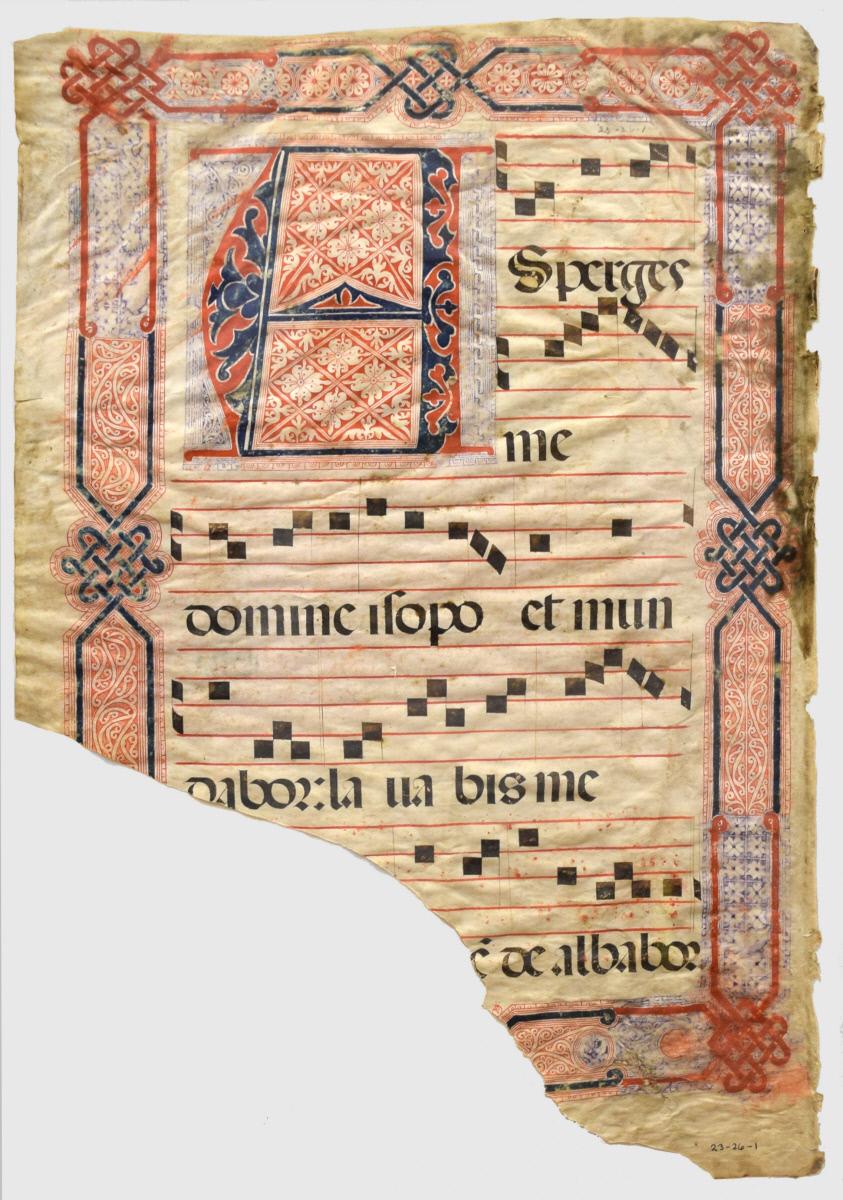 23-26-1
ASperges
me
domine isopo et mun
dabor: la ua bis me
de albabor
23-26-1